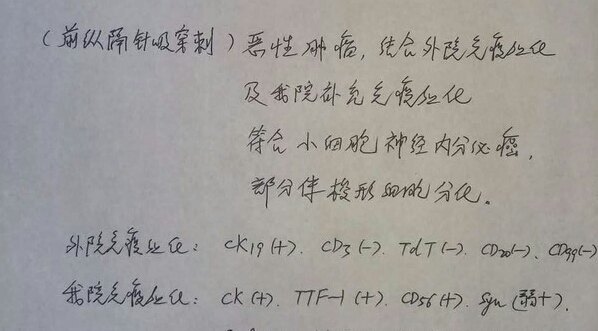 (前纵隔针吸穿刺)恶性肿瘤,结合外院免疫组化
及我院补充免疫组化
符合小细胞神经内分泌癌,
部分伴梭形细胞分化。
外院免疫组化: CK19(+). CD3(-). TdT(-). CD20(-). CD99(-)
我院免疫组化: CK(+). TTF-1(+). CD56(+). Syn(弱+).